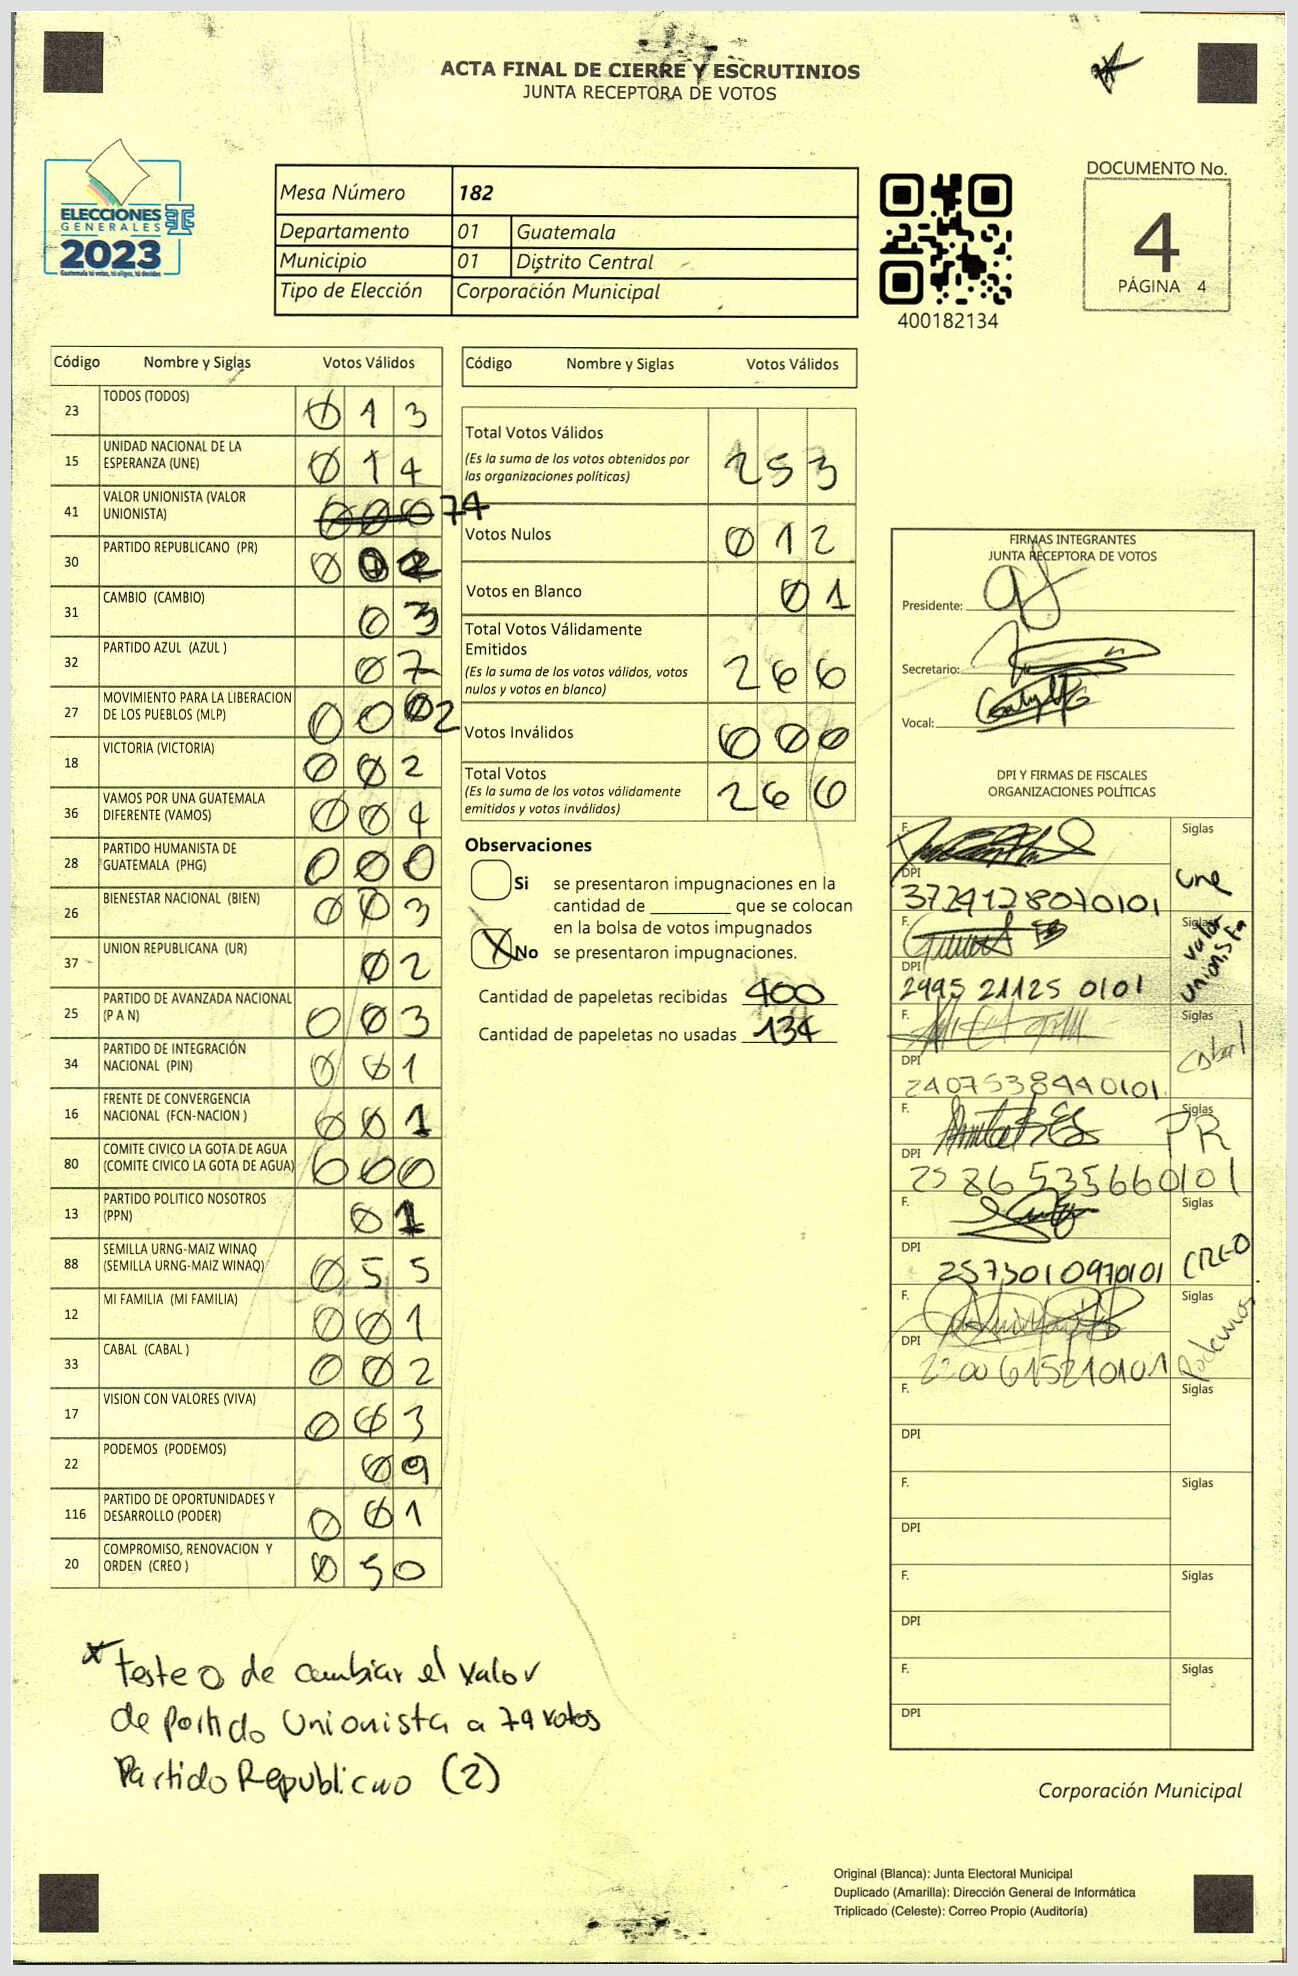 ACTA FINAL DE CIERRE Y ESCRUTINIOS
JUNTA RECEPTORA DE VOTOS
ELECCIONES
GENERALES
2023
Guatemala tú votas, tú eliges, tú decides
Mesa Número 182
Departamento 01 Guatemala
Municipio 01 Distrito Central
Tipo de Elección Corporación Municipal
400182134
DOCUMENTO No.
4
PÁGINA 4
Código Nombre y Siglas Votos Válidos
23 TODOS (TODOS) 0 1 3
15 UNIDAD NACIONAL DE LA
ESPERANZA (UNE) 0 1 4
41 VALOR UNIONISTA (VALOR
UNIONISTA) 000 74
30 PARTIDO REPUBLICANO (PR) 0 0 2
31 CAMBIO (CAMBIO) 0 3
32 PARTIDO AZUL (AZUL ) 0 7
27 MOVIMIENTO PARA LA LIBERACION
DE LOS PUEBLOS (MLP) 0 0 0 2
18 VICTORIA (VICTORIA) 0 0 2
36 VAMOS POR UNA GUATEMALA
DIFERENTE (VAMOS) 0 0 4
28 PARTIDO HUMANISTA DE
GUATEMALA (PHG) 0 0 0
26 BIENESTAR NACIONAL (BIEN) 0 0 3
37 UNION REPUBLICANA (UR) 0 2
25 PARTIDO DE AVANZADA NACIONAL
(P A N) 0 0 3
34 PARTIDO DE INTEGRACIÓN
NACIONAL (PIN) 0 0 1
16 FRENTE DE CONVERGENCIA
NACIONAL (FCN-NACION ) 0 0 1
80 COMITE CIVICO LA GOTA DE AGUA
(COMITE CIVICO LA GOTA DE AGUA) 0 0 0
13 PARTIDO POLITICO NOSOTROS
(PPN) 0 1
88 SEMILLA URNG-MAIZ WINAQ
(SEMILLA URNG-MAIZ WINAQ) 0 5 5
12 MI FAMILIA (MI FAMILIA) 0 0 1
33 CABAL (CABAL ) 0 0 2
17 VISION CON VALORES (VIVA) 0 0 3
22 PODEMOS (PODEMOS) 0 9
116 PARTIDO DE OPORTUNIDADES Y
DESARROLLO (PODER) 0 0 1
20 COMPROMISO, RENOVACION Y
ORDEN (CREO ) 0 5 0
Código Nombre y Siglas Votos Válidos
Total Votos Válidos 2 5 3
(Es la suma de los votos obtenidos por
las organizaciones políticas)
Votos Nulos 0 1 2
Votos en Blanco 0 1
Total Votos Válidamente
Emitidos 2 6 6
(Es la suma de los votos válidos, votos
nulos y votos en blanco)
Votos Inválidos 0 0 0
Total Votos 2 6 6
(Es la suma de los votos válidamente
emitidos y votos inválidos)
Observaciones
Si se presentaron impugnaciones en la
cantidad de ________ que se colocan
en la bolsa de votos impugnados
X No se presentaron impugnaciones.
Cantidad de papeletas recibidas 400
Cantidad de papeletas no usadas 134
FIRMAS INTEGRANTES
JUNTA RECEPTORA DE VOTOS
Presidente:
Secretario:
Vocal:
DPI Y FIRMAS DE FISCALES
ORGANIZACIONES POLÍTICAS
F. Siglas
DPI 3729128070101 Une
F. Siglas
DPI 2995 21125 0101 Valor Unionista
F. Siglas
DPI 2407538440101 Cabal
F. Siglas
DPI 2586535660101 PR
F. Siglas
DPI 2573010970101 CREO
F. Siglas
DPI 2200615210101 Podemos
F. Siglas
DPI
F. Siglas
DPI
F. Siglas
DPI
F. Siglas
DPI
* Testeo de cambiar el valor
de partido Unionista a 74 votos
Partido Republicno (2)
Corporación Municipal
Original (Blanca): Junta Electoral Municipal
Duplicado (Amarilla): Dirección General de Informática
Triplicado (Celeste): Correo Propio (Auditoría)